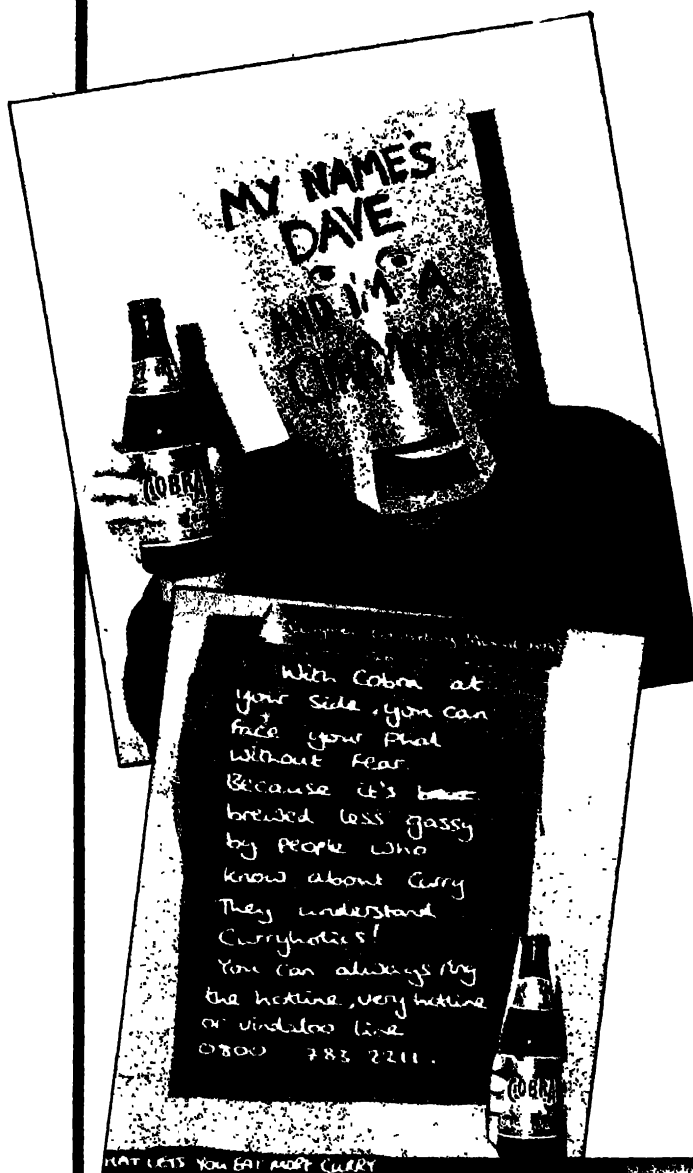 MY NAME'S
DAVE
AND I'M A
COBRA
With Cobra at
your side, you can
face your Phal
without fear.
Because it's
brewed less gassy
by people who
know about Curry
They understand
Curryholics!
You can always ring
the hotline, very hotline
or vindaloo line
0800 783 2211.
COBRA
HAT LETS YOU EAT MORE CURRY